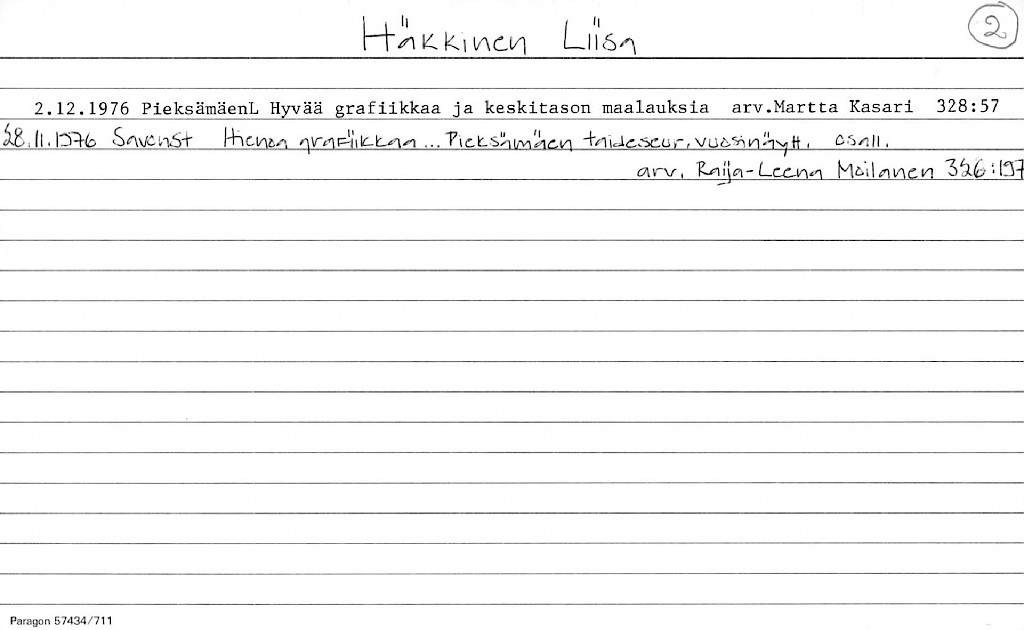 Häkkinen Liisa
2
2.12.1976 PieksämäenL Hyvää grafiikkaa ja keskitason maalauksia arv.Martta Kasari 328:57
28.11.1976 SavonSt Hienoa grafiikkaa... Pieksämäen taideseur. vuosinäytt. osall.
arv. Raija-Leena Moilanen 326:197
Paragon 57434/711